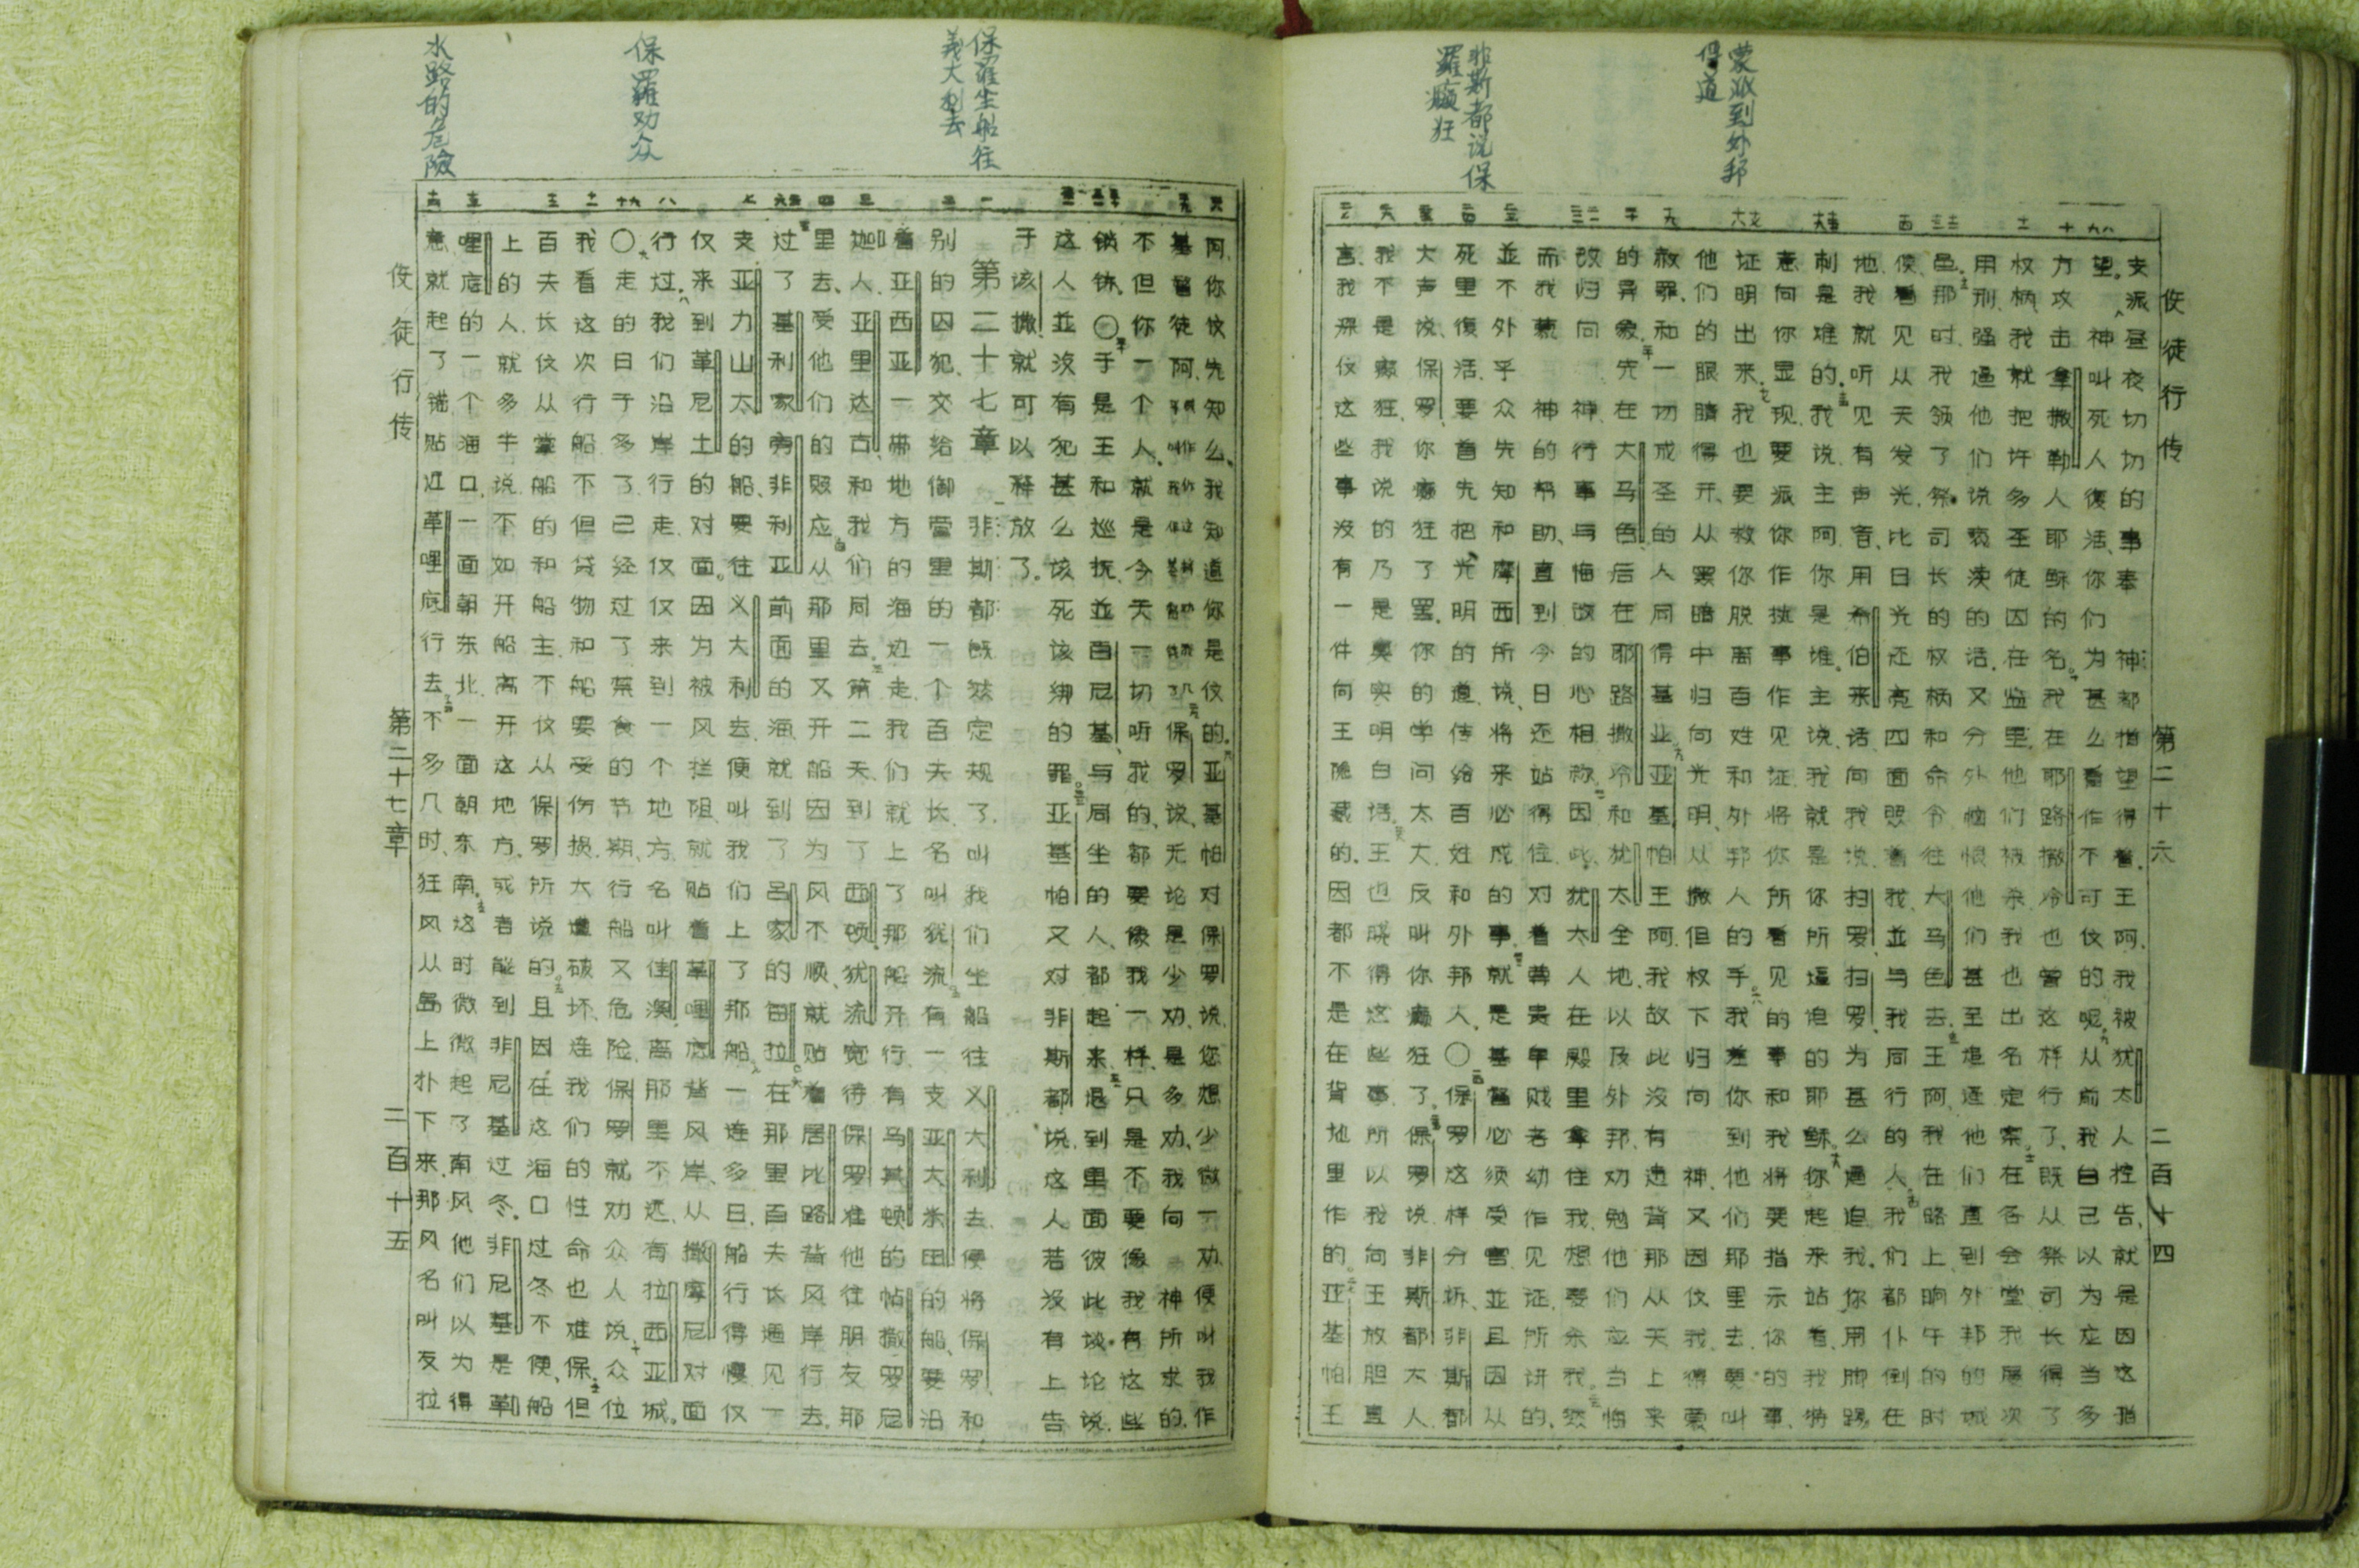 蒙派到外邦
得道
非斯都说保
羅癲狂
使徒行传　第二十六　二百十四
支派昼夜切切的事奉 神都指望得着.王阿.我被犹太人控告.就是因这指
望。 神叫死人復活、你们为甚么看作不可伩的呢.从前我自己以为应当多
方攻击拿撒勒人耶稣的名.我在耶路撒冷也曾这样行了.既从祭司长得了
权柄我就把许多圣徒囚在监里.他们被杀.我也出名定案.在各会堂我屡次
用刑强逼他们说亵渎的话.又分外恼恨他们甚至追逼他们直到外邦的城
邑.那时我领了祭司长的权柄和命令往大马色去.王阿我在路上晌午的时
候看见从天发光.比日光还亮四面照着我並与我同行的人.我们都仆倒在
地我就听见有声音、用希伯来话向我说.扫罗扫罗为甚么逼迫我.你用脚踢
刺是难的.我说主阿你是谁。主说我就是你所逼迫的耶稣.你起来站着.我特
意向你显现、要派你作执事作见证将你所看见的事和我将要指示你的事.
证明出来.我也要救你脱离百姓和外邦人的手.我差你到他们那里去要叫
他们的眼睛得开.从黑暗中归向光明、从撒但权下归向 神.又因伩我得蒙
赦罪.和一切成圣的人同得基业.亚基帕王阿.我故此没有违背那从天上来
的异象.先在大马色后在耶路撒冷和犹太全地以及外邦.劝勉他们应当悔
改归向 神行事与悔改的心相称.因此犹太人在殿里拿住我.想要杀我.然
而我蒙 神的帮助、直到今日还站得住.对着尊贵年贱老幼作见证.所讲的.
並不外乎众先知和摩西所说、将来必成的事.就是基督必须受害並且因从
死里復活.要首先把光明的道传给百姓和外邦人.〇保罗这样分拆、非斯都
大声说.保罗你癫狂了罢.你的学问太大.反叫你癫狂了.保罗说.非斯都大人
我不是癫狂.我说的乃是真实明白话.王也晓得这些事.所以我向王放胆直
言.我深伩这些事没有一件向王隐藏的.因都不是在背地里作的.亚基帕王
保羅坐船往
義大利去
保羅劝众
水路的危險
阿.你伩先知么.我知道你是伩的.亚基帕对保罗说.您想少微一劝便叫我作
基督徒阿.保罗说.无论是少劝.是多劝.我向 神所求的.
不但你一个人.就是今天一切听我的、都要像我一样.只是不要像我有这些
锁链.〇于是王和巡抚並百尼基与同坐的人都起来.退到里面彼此谈论说.
这人並没有犯甚么该死该绑的罪.亚基帕又对非斯都说.这人若没有上告
于该撒.就可以释放了.
第二十七章　非斯都既然定规了.叫我们坐船往义大利去.便将保罗和
别的囚犯.交给御营里的一个百夫长.名叫犹流.有一支亚大米田的船、要沿
着亚西亚一带地方的海边走.我们就上了那船开行.有马其顿的帖撒罗尼
迦人.亚里达古和我们同去.第二天到了西顿.犹流宽待保罗.准他往朋友那
里去、受他们的照应.从那里又开船因为风不顺就贴着居比路背风岸行去.
过了基利家旁非利亚前面的海.就到了吕家的每拉.在那里百夫长遇见一
支亚力山太的船、要往义大利去.便叫我们上了那船.一连多日.船行得慢仅
仅来到革尼土的对面。因为被风拦阻就贴着革哩底背风岸.从撒摩尼对面
行过.我们沿岸行走.仅仅来到一个地方名叫佳澳.离那里不远.有拉西亚城。
〇走的日子多了.已经过了禁食的节期.行船又危险.保罗就劝众人说.众位
我看这次行船.不但货物和船要受伤损.大遭破坏.连我们的性命也难保.但
百夫长伩从掌船的和船主.不伩从保罗所说的.且因在这海口过冬不便.船
上的人.就多半说.不如开船离开这地方.或者能到非尼基过冬.非尼基是革
哩底的一个海口.一面朝东北.一面朝东南.这时微微起了南风.他们以为得
意.就起了锚贴近革哩底行去.不多几时.狂风从岛上扑下来.那风名叫友拉
使徒行传　第二十七章　二百十五